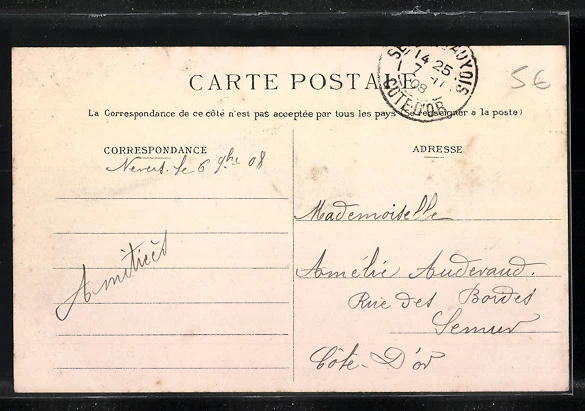 CARTE POSTALE
14 25
7
08
CÔTE-D'OR
5€
La Correspondance de ce côté n'est pas acceptée par tous les pays (Se renseigner à la poste)
CORRESPONDANCE
Nevers, le 6 9bre 08
Amitiés
ADRESSE
Mademoiselle
Amélie Auderaud.
Rue des Bordes
Semur
Côte-D'or